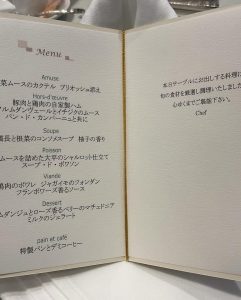 Menu
Amuse
菜ムースのカクテル ブリオッシュ添え
Hors-d'œuvre
豚肉と鶏肉の自家製ハム
ムダンヴェールとイチジクのムース
パン・ド・カンパーニュと共に
Soupe
長と根菜のコンソメスープ 柚子の香り
Poisson
ムースを詰めた大平のシャルロット仕立て
スープ・ド・ポワソン
Viande
鶏肉のポワレ ジャガイモのフォンダン
フランボワーズ香るソース
Dessert
ムダンジュとローズ香るベリーのマチェドニア
ミルクのジェラート
pain et café
特製パンとデミコーヒー
本日テーブルにお出しする料理に
旬の食材を厳選し調理いたしました
心ゆくまでご堪能下さい。
Chef